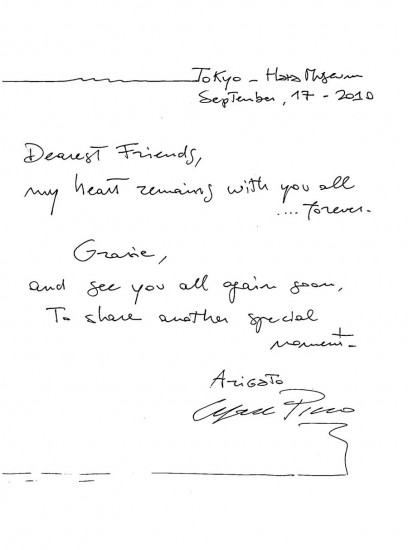 Tokyo - Hara Museum
September, 17 - 2010
Dearest Friends,
my heart remains with you all
.... forever.
Grazie,
and see you all again soon,
To share another special
moment -
Arigato